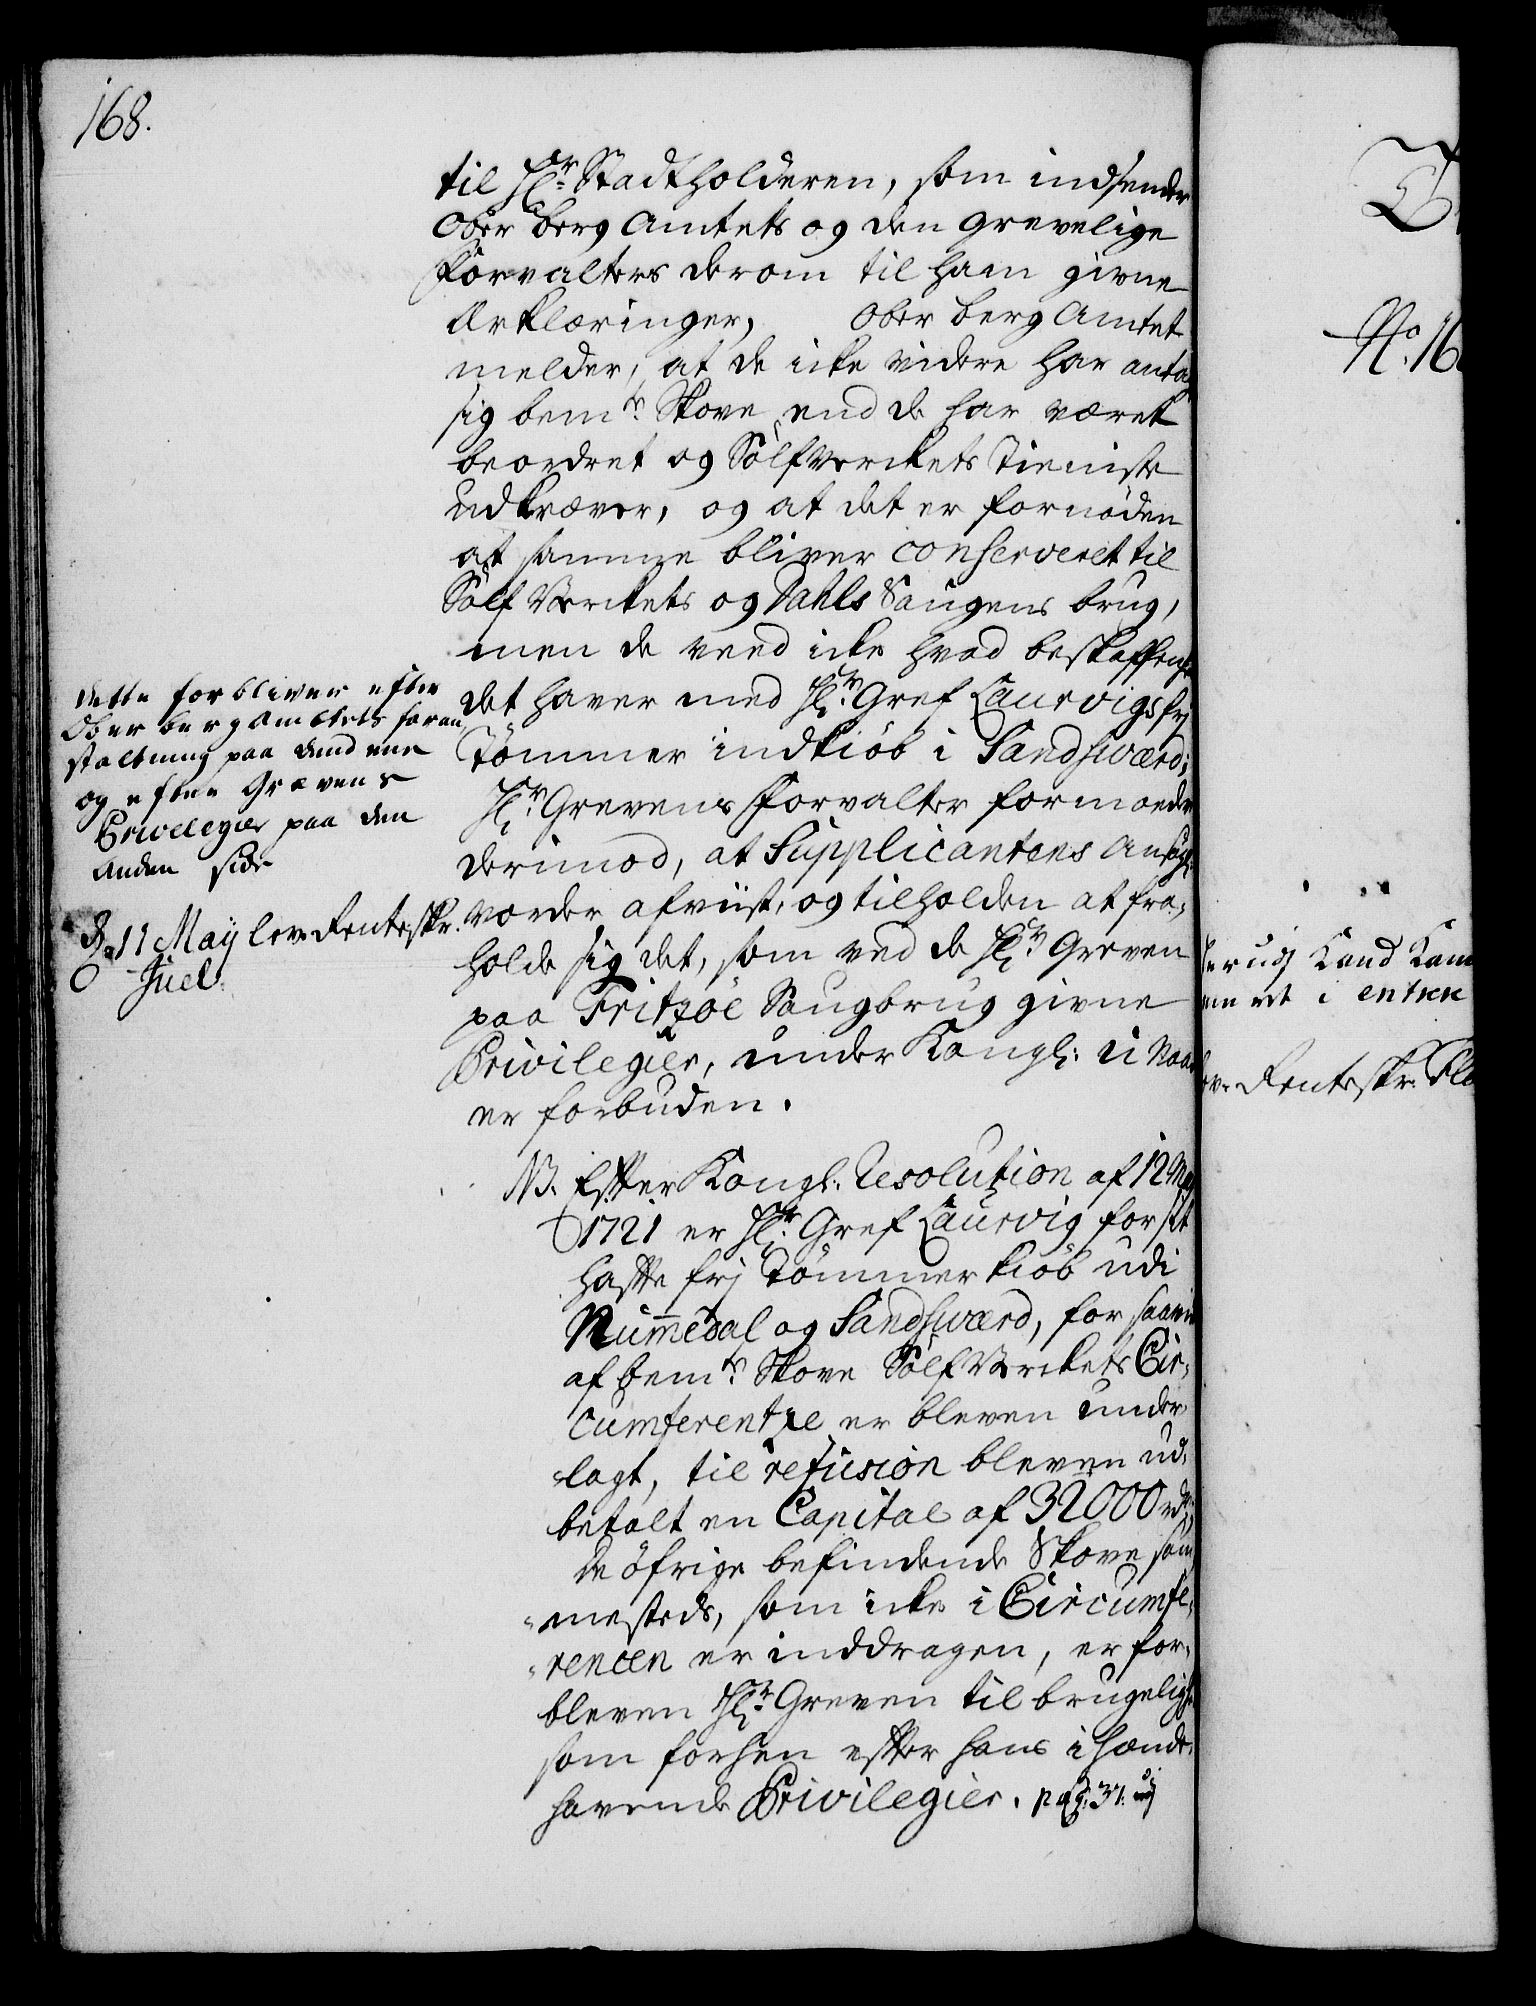 168.
til Hr: Stadtholderen, som indsender
Ober Berg Amtets og den Grevelige
Forvalters derom til ham givne
Erklæringer, Ober Berg Amtet
melder, at de icke videre har antag
sig bemte: Skove, end de har været
beordret og Sølfverckets Tieniste
udkræver, og at det er fornøden
at samme bliver conserveret til
Sølf Verckets og Dahls Saugens brug,
men de veed icke hvad beskaffenh
det haver med Hr: Gref Laurvigs frj
Tømmer indkiøb i Sandsværd;
Hr: Grevens Forvalter formoeder
derimod, at Supplicantens Ansøgn:
vorder afviist, og tilholden at fra-
holde sig det, som ved de Hr: Greven
paa Fritzøe Saugbrug givne
Privilegier, under Kongl: u-Naade
er forbuden.
NB. Efter Kongl. Resolution af 12 May
1721 er Hr: Gref Laurvig for sit
hafte frj Tømmer kiøb udi
Nummedal og Sandsværd, for saavit
af bemte: Skove Sølf Verckets Cir-
cumferentze er bleven under-
lagt, til refusion bleven ud-
betalt en Capital af 32000 rdr;
De øfrige befindende Skove sam-
mesteds, som icke i Circumfe-
rencen er inddragen, er for-
bleven Hr: Greven til brugelighed
som forhen efter hans i hænde-
havende Privilegier. pag: 37.
dette forbliver efter
Oberbergamtets foran
staltning paa dend ene
og efter Grævens
Privilegier paa den
anden side
d. 11 May lev. Renteskr.
Juel.
No. 16
Kand Kam
i entree
Renteskr.